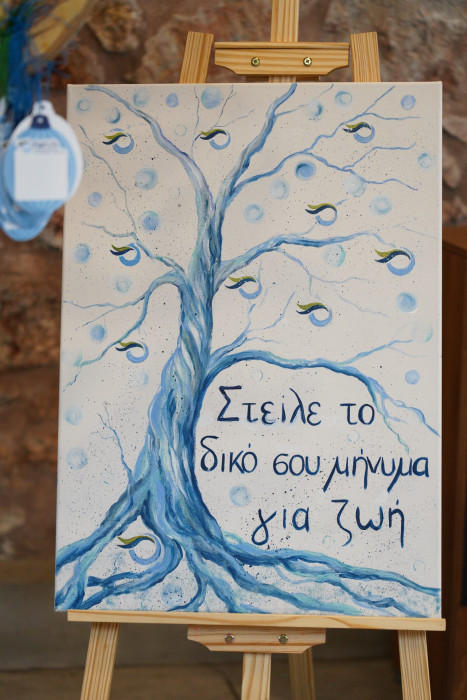 Στείλε το
δικό σου μήνυμα
για ζωή